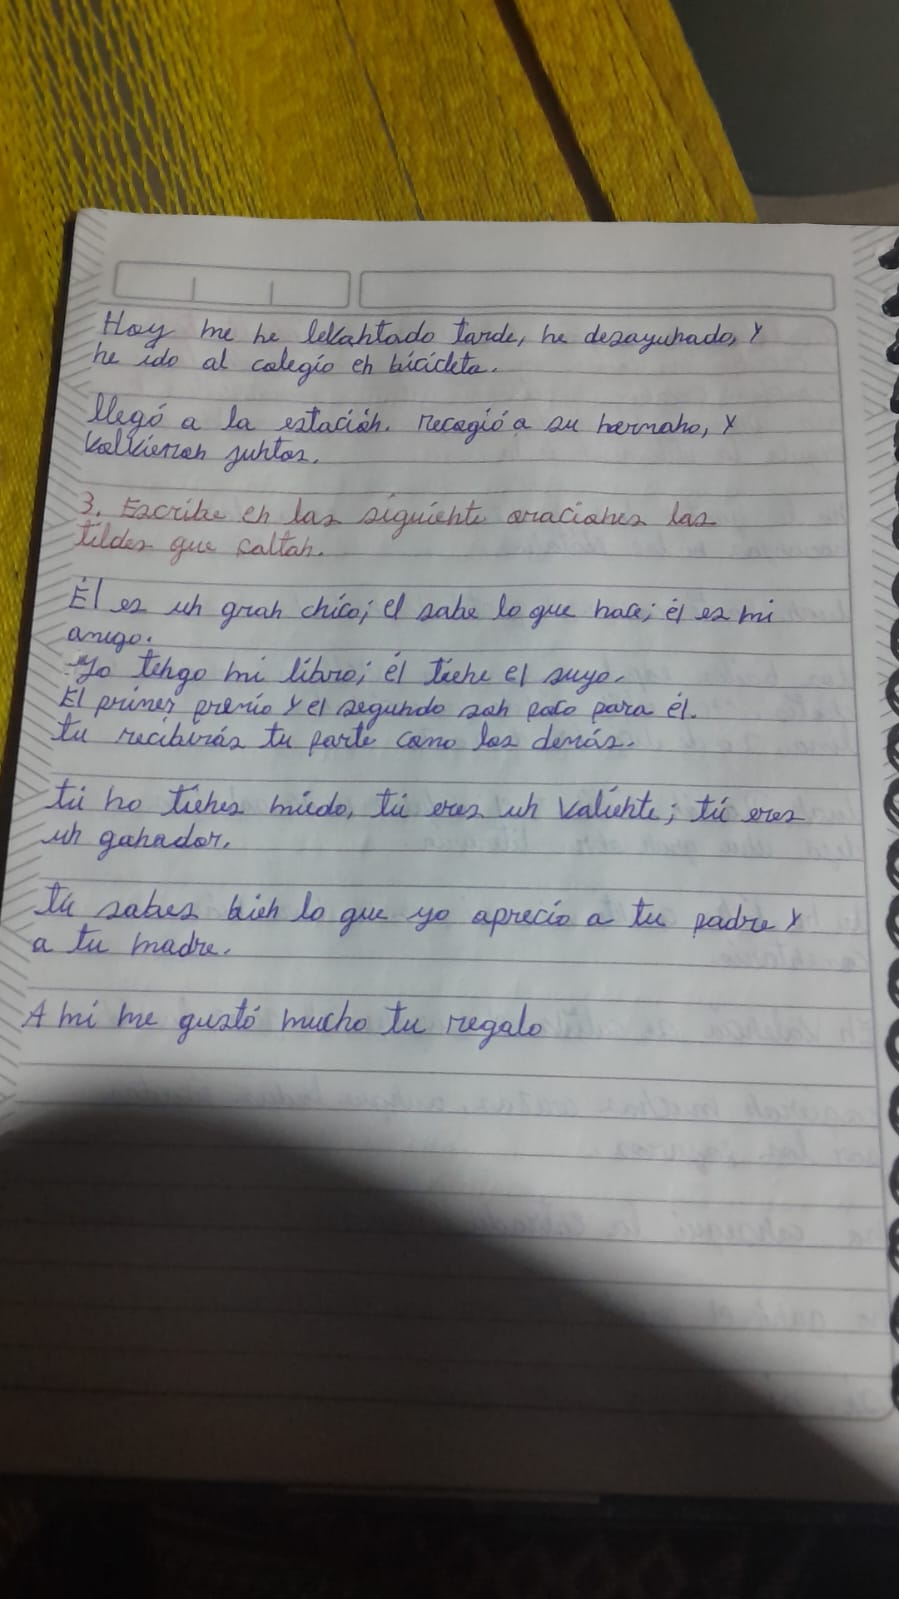 Hoy me he levantado tarde, he desayunado, y
he ido al colegio en bicicleta.
llegó a la estación. recogió a su hermano, y
volvieron juntos.
3. Escribe en las siguiente oraciones las
tildes que faltan.
Él es un gran chico; él sabe lo que hace; él es mi
amigo.
Yo tengo mi libro; él tiene el suyo.
El primer premio y el segundo son para él.
tu recibirás tu parte como los demás.
tú no tienes miedo, tú eres un valiente; tú eres
un ganador.
tú sabes bien lo que yo aprecio a tu padre y
a tu madre.
A mí me gustó mucho tu regalo